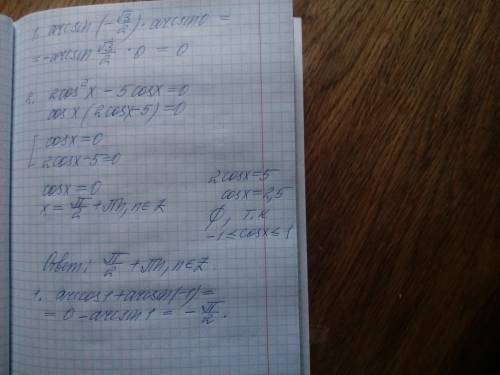 7. arcsin(-√3/2)·arcsin0 =
= -arcsin √3/2 · 0 = 0
8. 2cos²x - 5cosx=0
cosx(2cosx-5)=0
[ cosx=0
2cosx-5=0
cosx=0
x= π/2 + πn, n∈Z
2cosx=5
cosx=2,5
∅, т.к
-1≤cosx≤1
Ответ: π/2 + πn, n∈Z.
1. arccos1+arcsin(-1)=
= 0 - arcsin1 = - π/2.